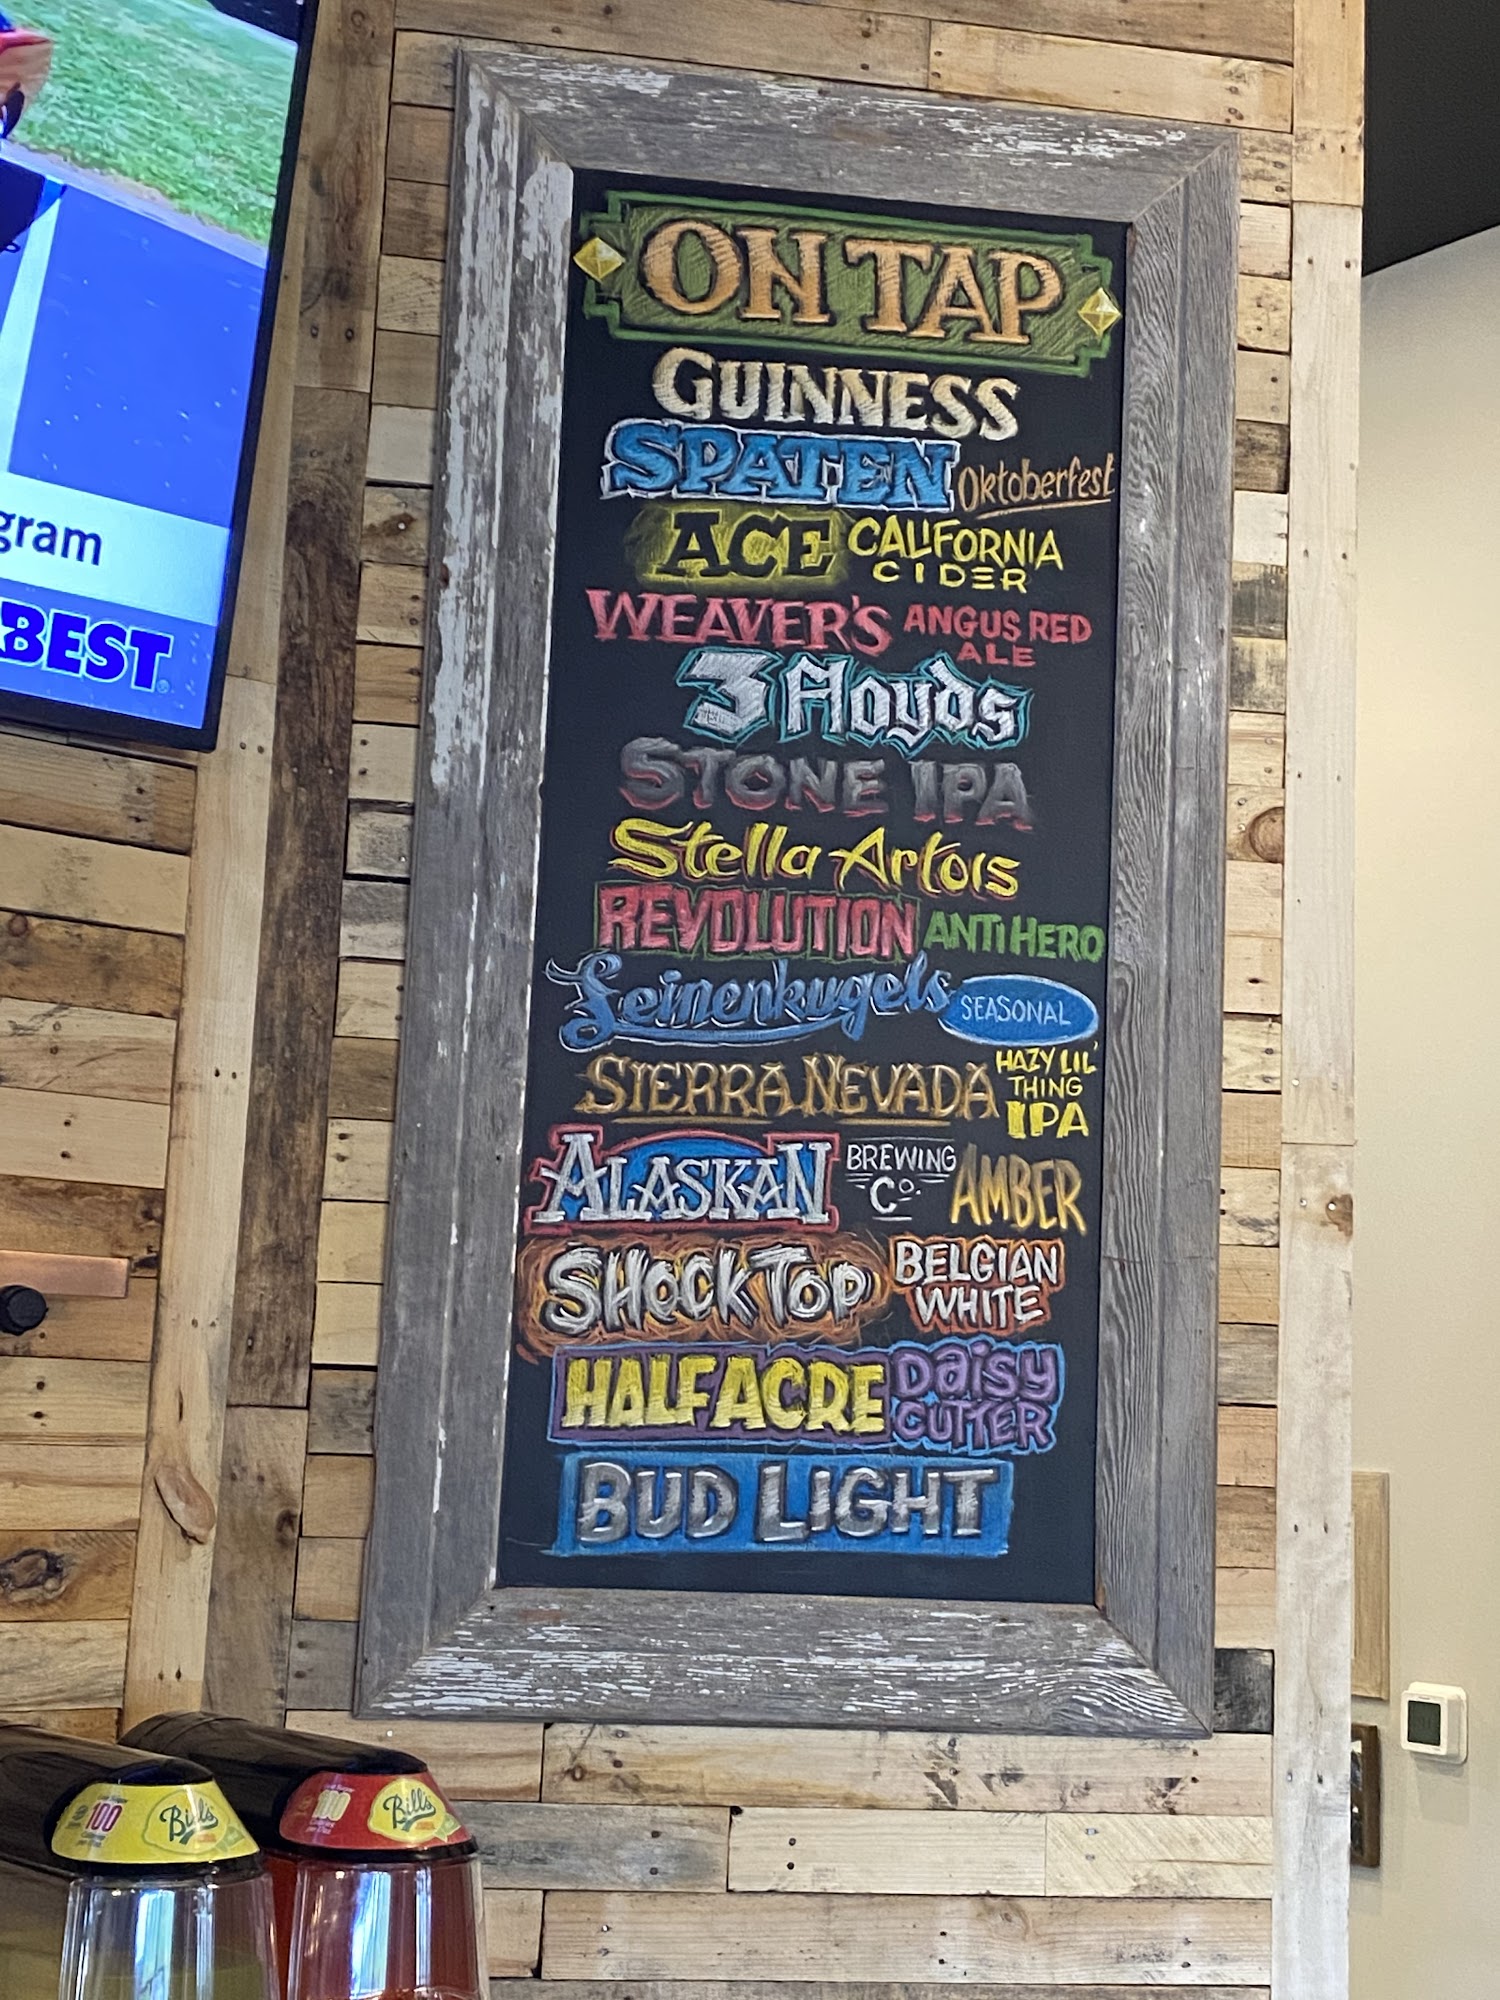 gram
BEST
ON TAP
GUINNESS
SPATEN Oktoberfest
ACE CALIFORNIA
CIDER
WEAVER'S ANGUS RED
ALE
3 Floyds
STONE IPA
Stella Artois
REVOLUTION ANTI HERO
Leinenkugels SEASONAL
SIERRA NEVADA HAZY LIL'
THING
IPA
ALASKAN BREWING
Co. AMBER
SHOCK TOP BELGIAN
WHITE
HALF ACRE Daisy
CUTTER
BUD LIGHT
100 Bill's
100 Bill's